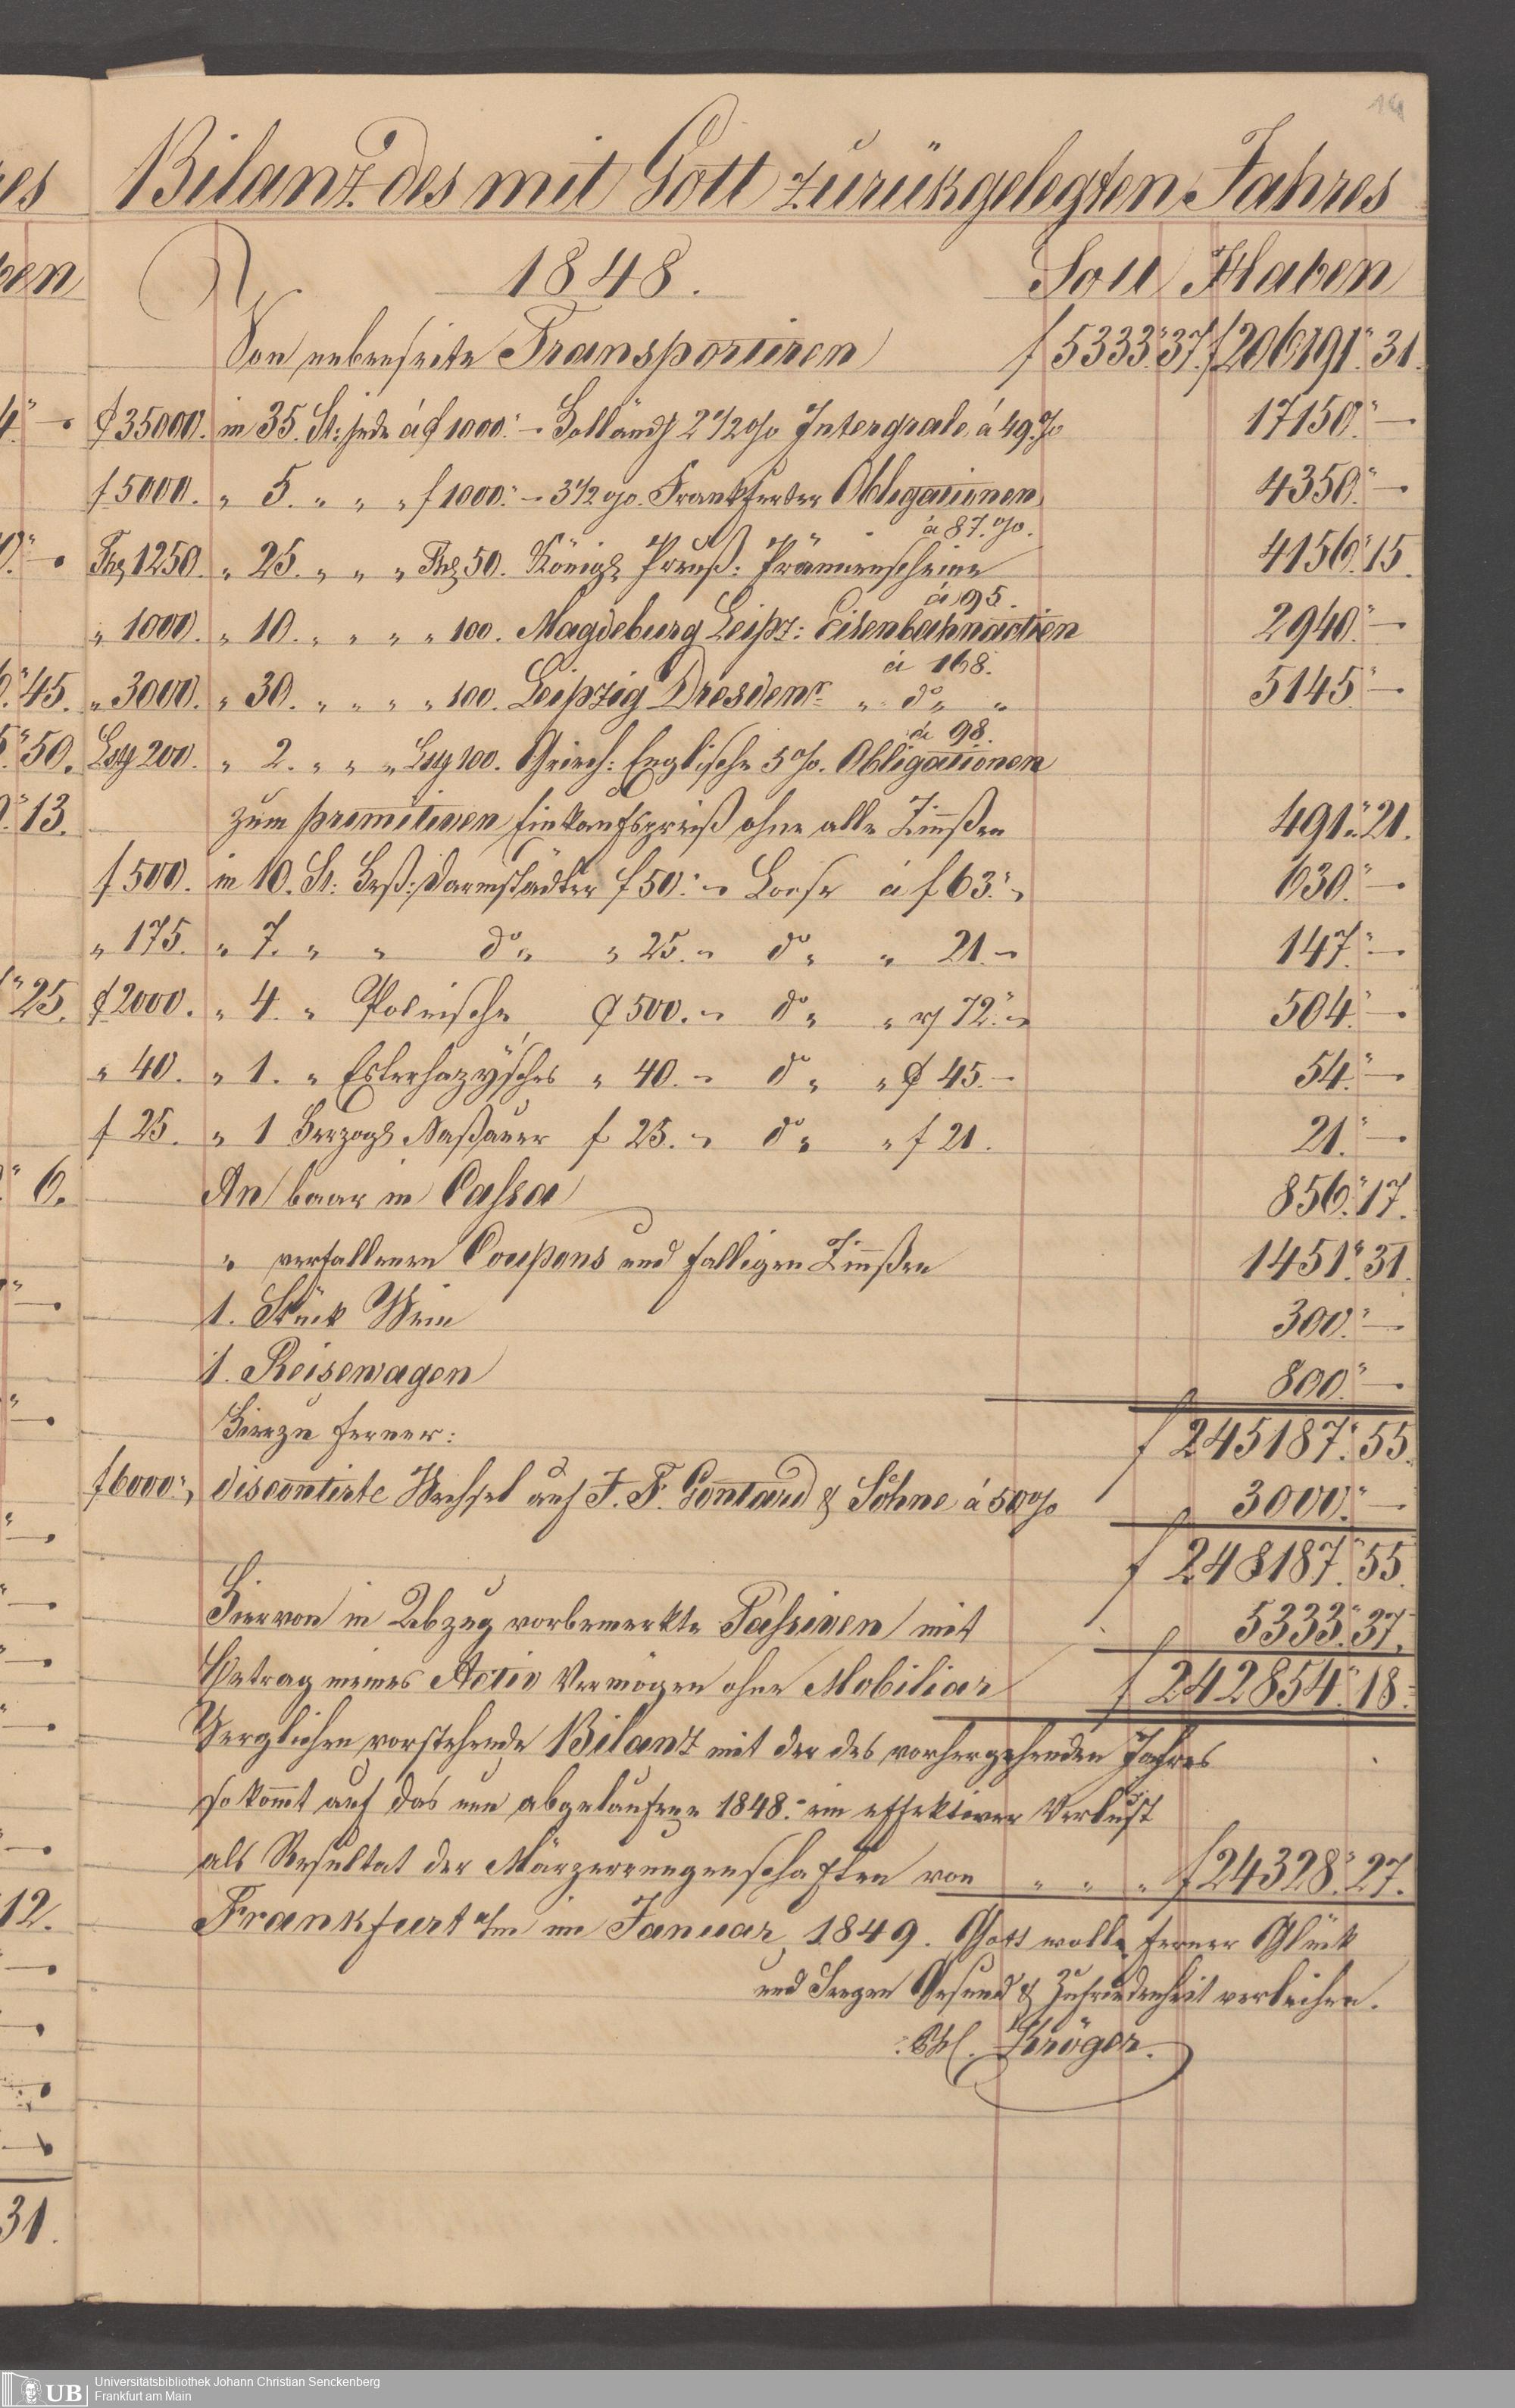 14
Bilanz des mit Gott zurükgelegten Jahres
1848. Soll Haben
Von nebenseite Transportiren f 5333." 37. f 206191." 31.
f 35000. in 35. St: jede á f 1000." – Holländ. 2 1/2 % Integrale á 49. % 17150." –
f 5000. " 5. " " " f 1000." – 3 1/2 %. Frankfurter Obligationen 4350." –
á 87. %.
Thl 1250. " 25. " " " Thl 50. Königl. Preuß: Prämienscheine 4156." 15.
á 95.
" 1000. " 10. " " " " 100. Magdeburg Leipz: Eisenbahnactien 2940." –
á 168.
" 3000. " 30. " " " " 100. Leipzig Dresdenr. " do " " 5145." –
á 98.
Lstg 200. " 2. " " " Lstg 100. Griech: Englische 5 %. Obligationen
zum primitiven Einkaufspreiß ohne alle Zinnßen 491." 21.
f 500. in 10. St: Grß: Darmstädter f 50." – Loose á f 63." – 630." –
" 175. " 7. " " do " " 25. – do " " 21. – 147." –
f 2000. " 4. " Polnische f 500. – do " " rf 72." – 504." –
" 40. " 1. " Esterhazÿsches " 40. – do " " f 45. – 54." –
f 25. " 1 Herzogl. Naßauer f 25. – do " " f 21. 21." –
An baar in Cassa 856." 17.
" verfallenen Coupons und fälligen Zinnßen 1451." 31.
1. Stück Wein 300." –
1. Reisewagen 800." –
Hierzu ferner: f 245187." 55.
f 6000." – discontirte Wechsel auf J. F. Gontard & Söhne á 50 % " 3000." –
f 248187." 55.
Hiervon in Abzug vorbemerkte Passiven mit " 5333." 37.
Betrag meines Activ Vermögen ohne Mobiliar f 242854." 18.
Verglichen vorstehende Bilanz mit der des vorhergehenden Jahres
so kommt auf das nun abgelaufene 1848." ein effektiver Verlust
als Resultat der Märzerrungenschaften von " " " f 24328." 27.
Frankfurt a/m im Januar 1849. Gott wolle ferner Glück
und Seegen Gesund & Zufriedenheit verleihen.
Kröger.
es
ben
4." –
0." –
45.
50.
13.
25.
6.
12.
31.
UB Universitätsbibliothek Johann Christian Senckenberg
Frankfurt am Main